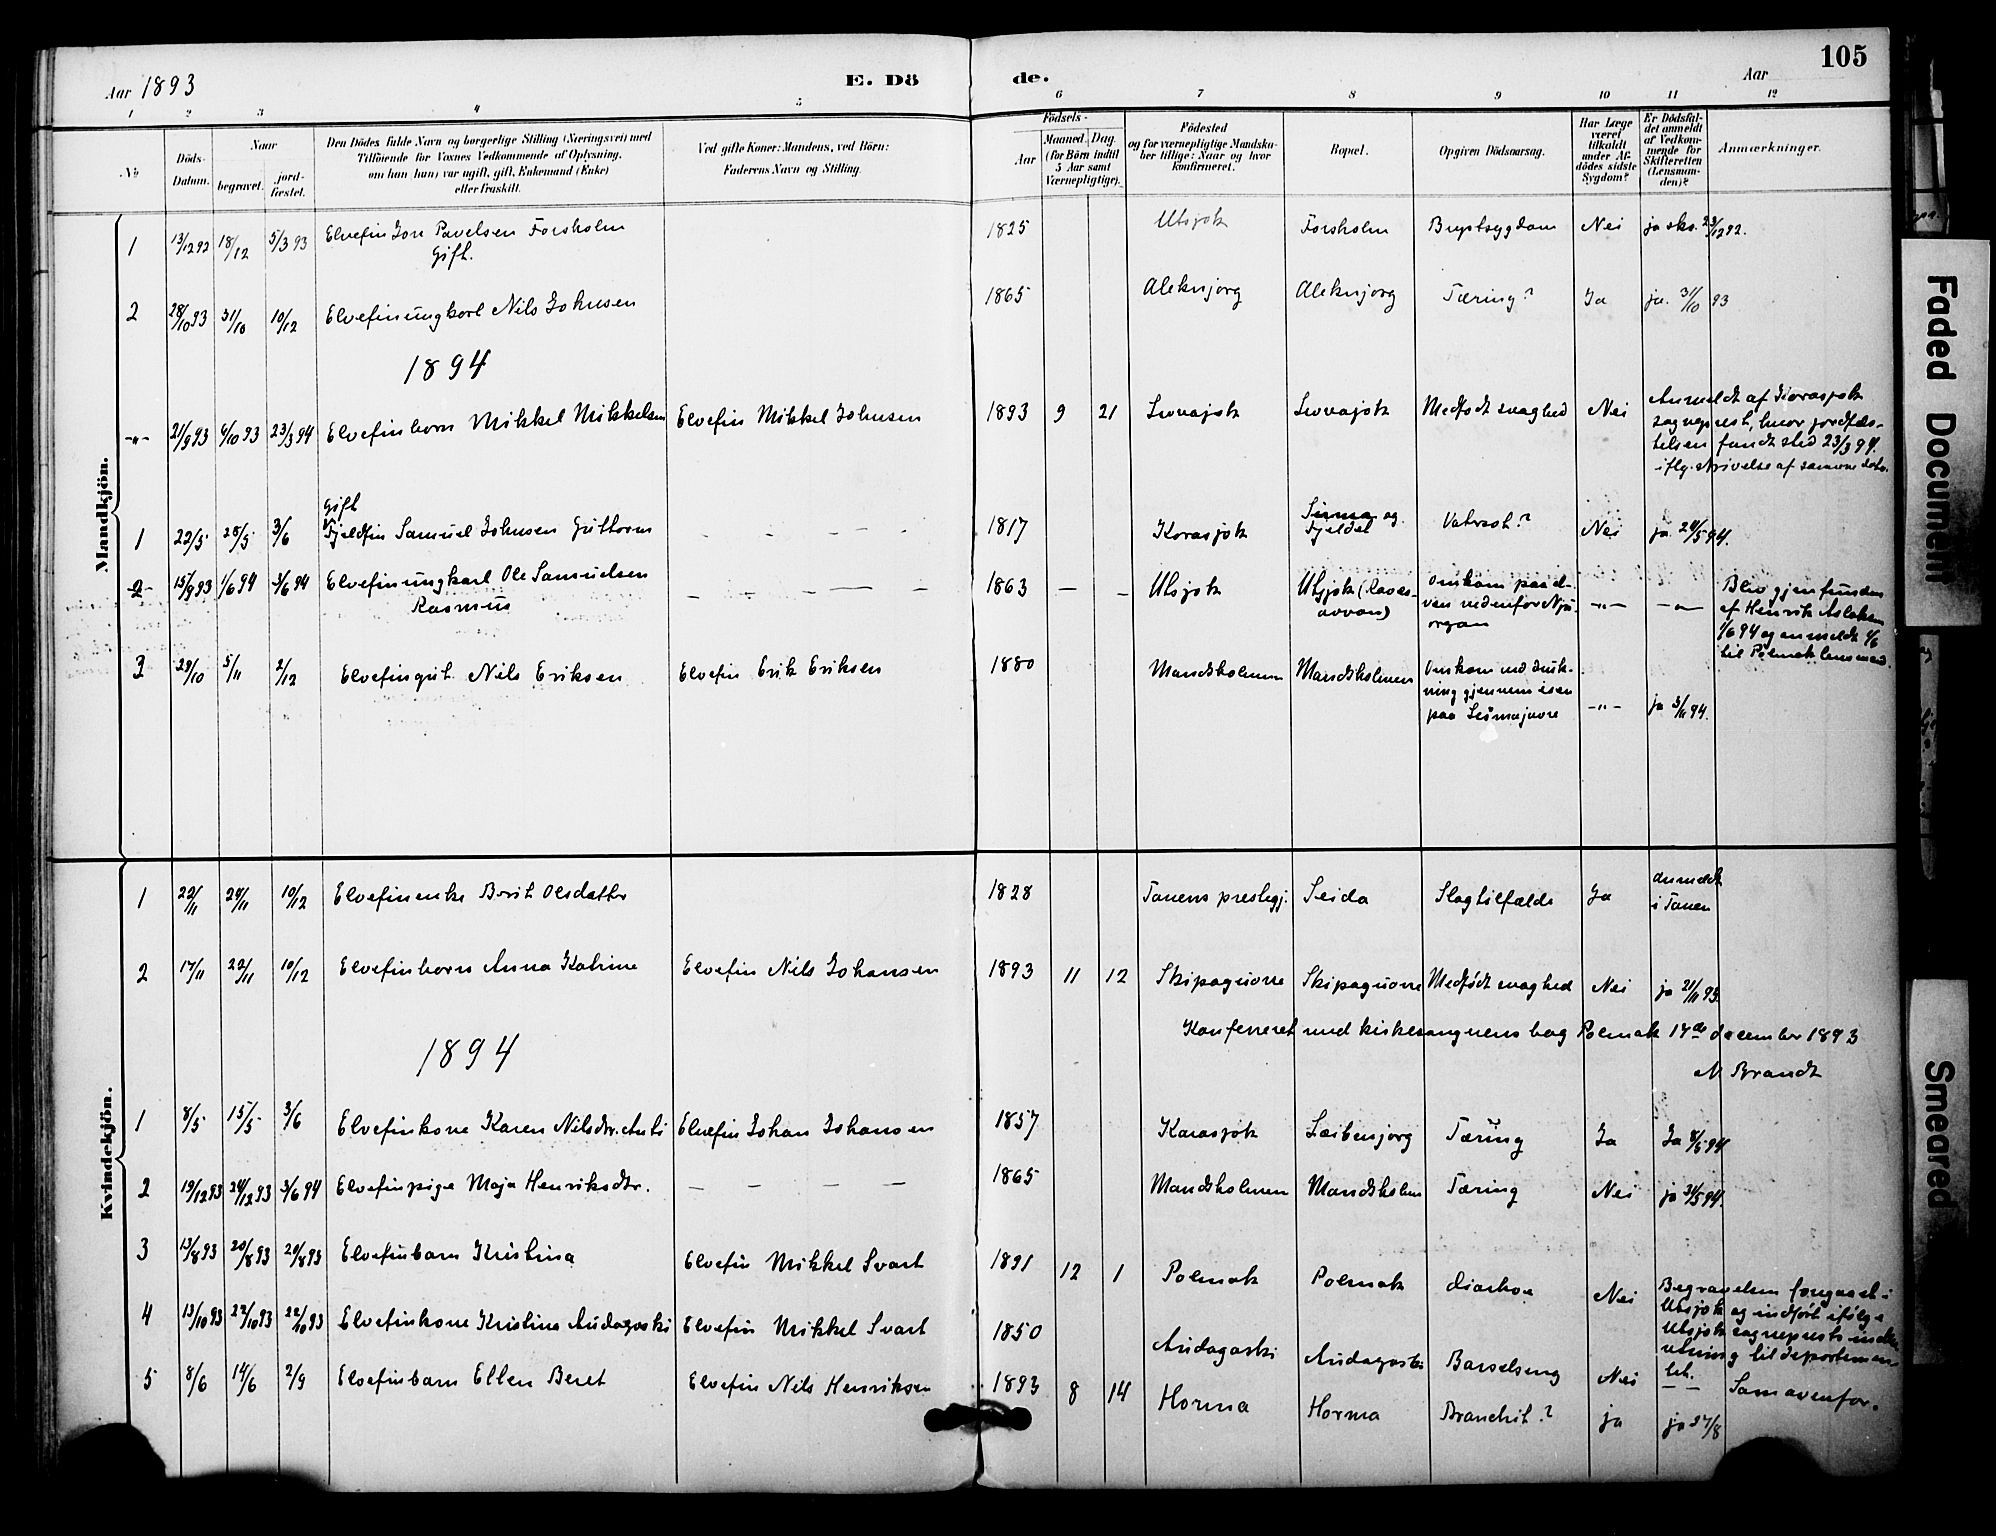 105
Aar 1893
E. Dö
de.
Aar
1 2 3 4 5 6 7 8 9 10 11 12
No
Döds-Datum.
Naar
begravet.
jord-fæstet.
Den Dödes fulde Navn og borgerlige Stilling (Næringsvei) med
Tilföiende for Voxnes Vedkommende af Oplysning,
om han (hun) var ugift, gift, Enkemand (Enke)
eller fraskilt.
Ved gifte Koner: Mandens, ved Börn:
Faderens Navn og Stilling.
Födsels-
Aar
Maaned. Dag.
(for Börn indtil
5 Aar samt
Værnepligtige).
Födested
og for værnepligtige Mandska-
ber tillige: Naar og hvor
konfirmeret.
Bopæl.
Opgiven Dödsaarsag.
Har Læge
været
tilkaldt
under Af-
dödes sidste
Sygdom?
Er Dödsfal-
det anmeldt
af Vedkom-
mende for
Skifteretten
(Lensman-
den)?
Anmærkninger.
Mandkjön.
1 13/12 92 18/12 5/3 93 Elvefin Jon Pavelsen Forsholm 1825 Utsjok Forsholm Brystsygdom Nei ja 23/12 92.
Gift.
2 28/10 93 31/10 10/12 Elvefinungkarl Nils Johnsen 1865 Aleknjarg Aleknjarg Tæring? Ja ja. 31/10 93
1894
-"- 21/9 93 4/10 93 23/3 94 Elvefinbarn Mikkel Mikkelsen Elvefin Mikkel Johnsen 1893 9 21 Levvajok Levvajok Medfødt svaghed Nei
Anmeldt af Korasjok
sogneprest, hvor jordfæs-
telsen fandt sted 23/3 94.
iflg. skrivelse af samme dato.
Gift
1 22/5 28/5 3/6 Fjeldfin Samuel Johnsen Guttorm - - - - 1817 Korasjok Sirma og Fjeldet Vatersot? Nei ja 24/5 94.
2 15/9 93 1/6 94 3/6 94 Elvefinungkarl Ole Samuelsen 1863 — — Utsjok
Rasmus
Omkom paa el-
ven nedenfor
-"- -"-
Blev gjenfunden
af Henrik Aslaksen
1/6 94 og anmeldt
til Polmak lensmand.
3 29/10 5/11 2/12 Elvefingut. Nils Eriksen Elvefin Erik Eriksen 1880 Mandsholmen Mandsholmen
Omkom ved druk-
ning gjennem isen
paa
-"- ja 3/11 94.
Kvindekjön.
1 22/11 29/11 10/12 Elvefinenke Berit Olsdatter 1828 Tanens prestegj. Seida Slagtilfælde Ja anmeldt i Tanen
2 17/11 22/11 10/12 Elvefinbarn Anna Katrine Elvefin Nils Johansen 1893 11 12 Skipaguorre Skipaguorre Medfødt svaghed Nei ja 21/11 93.
Konfereret med kirkesangerens bog Polmak 17de december 1893
N Brandt
1894
1 8/5 15/5 3/6 Elvefinkone Karen Nilsdtr. Anti Elvefin Johan Johansen 1857 Karasjok Leibenjarg Tæring Ja Ja 8/5 94
2 19/12 93 24/12 93 3/6 94 Elvefinpige Maja Henriksdtr. — — — — 1865 Mandsholmen Mandsholm Tæring Nei ja 31/5 94.
3 13/8 93 20/8 93 20/8 93 Elvefinbarn Kristina Elvefin Mikkel Svart 1891 12 1 Polmak Polmak diarhoe Nei
Begravelsen foregaaet i
Utsjok og indført ifølge
Utsjok sogneprests indbe-
retning til departemen-
tet.
4 13/10 93 22/10 93 22/10 93 Elvefinkone Kristine Audagoski Elvefin Mikkel Svart 1850 Audagoski Audagoski Barselseng Nei — — Som ovenfor.
5 8/6 14/6 2/9 Elvefinbarn Ellen Beret Elvefin Nils Henriksen 1893 8 14 Horma Horma Bronchit? ja ja 27/8
Faded Document
Smeared